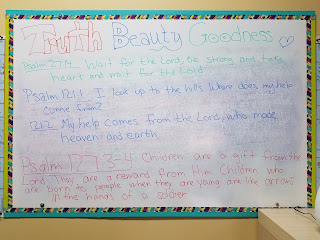 Truth Beauty Goodness
Psalm 27:14 Wait for the Lord; be strong and take
heart and wait for the Lord
Psalm 121:1 I look up to the hills. Where does my help
come from?
121:2 My help comes from the Lord, who made
heaven and earth
Psalm 127:3-4 Children are a gift from the
Lord They are a reward from Him Children who
are born to people when they are young are like arrows
in the hands of a soldier